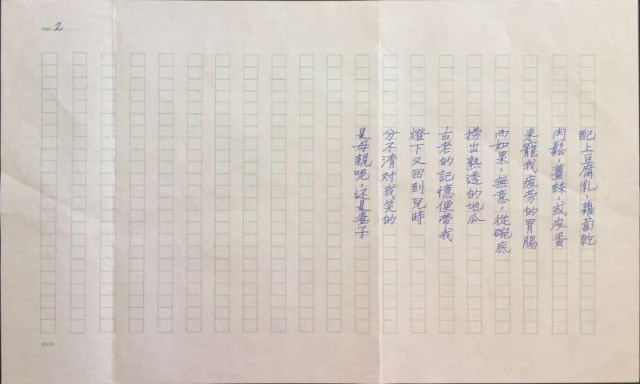 2
配上豆腐乳,蘿蔔乾
肉鬆,薑絲,或皮蛋
來寵我疲勞的胃腸
而如果,無意,從碗底
撈出熟透的地瓜
古老的記憶便帶我
燈下又回到兒時
分不清对我笑的
是母親呢,还是妻子